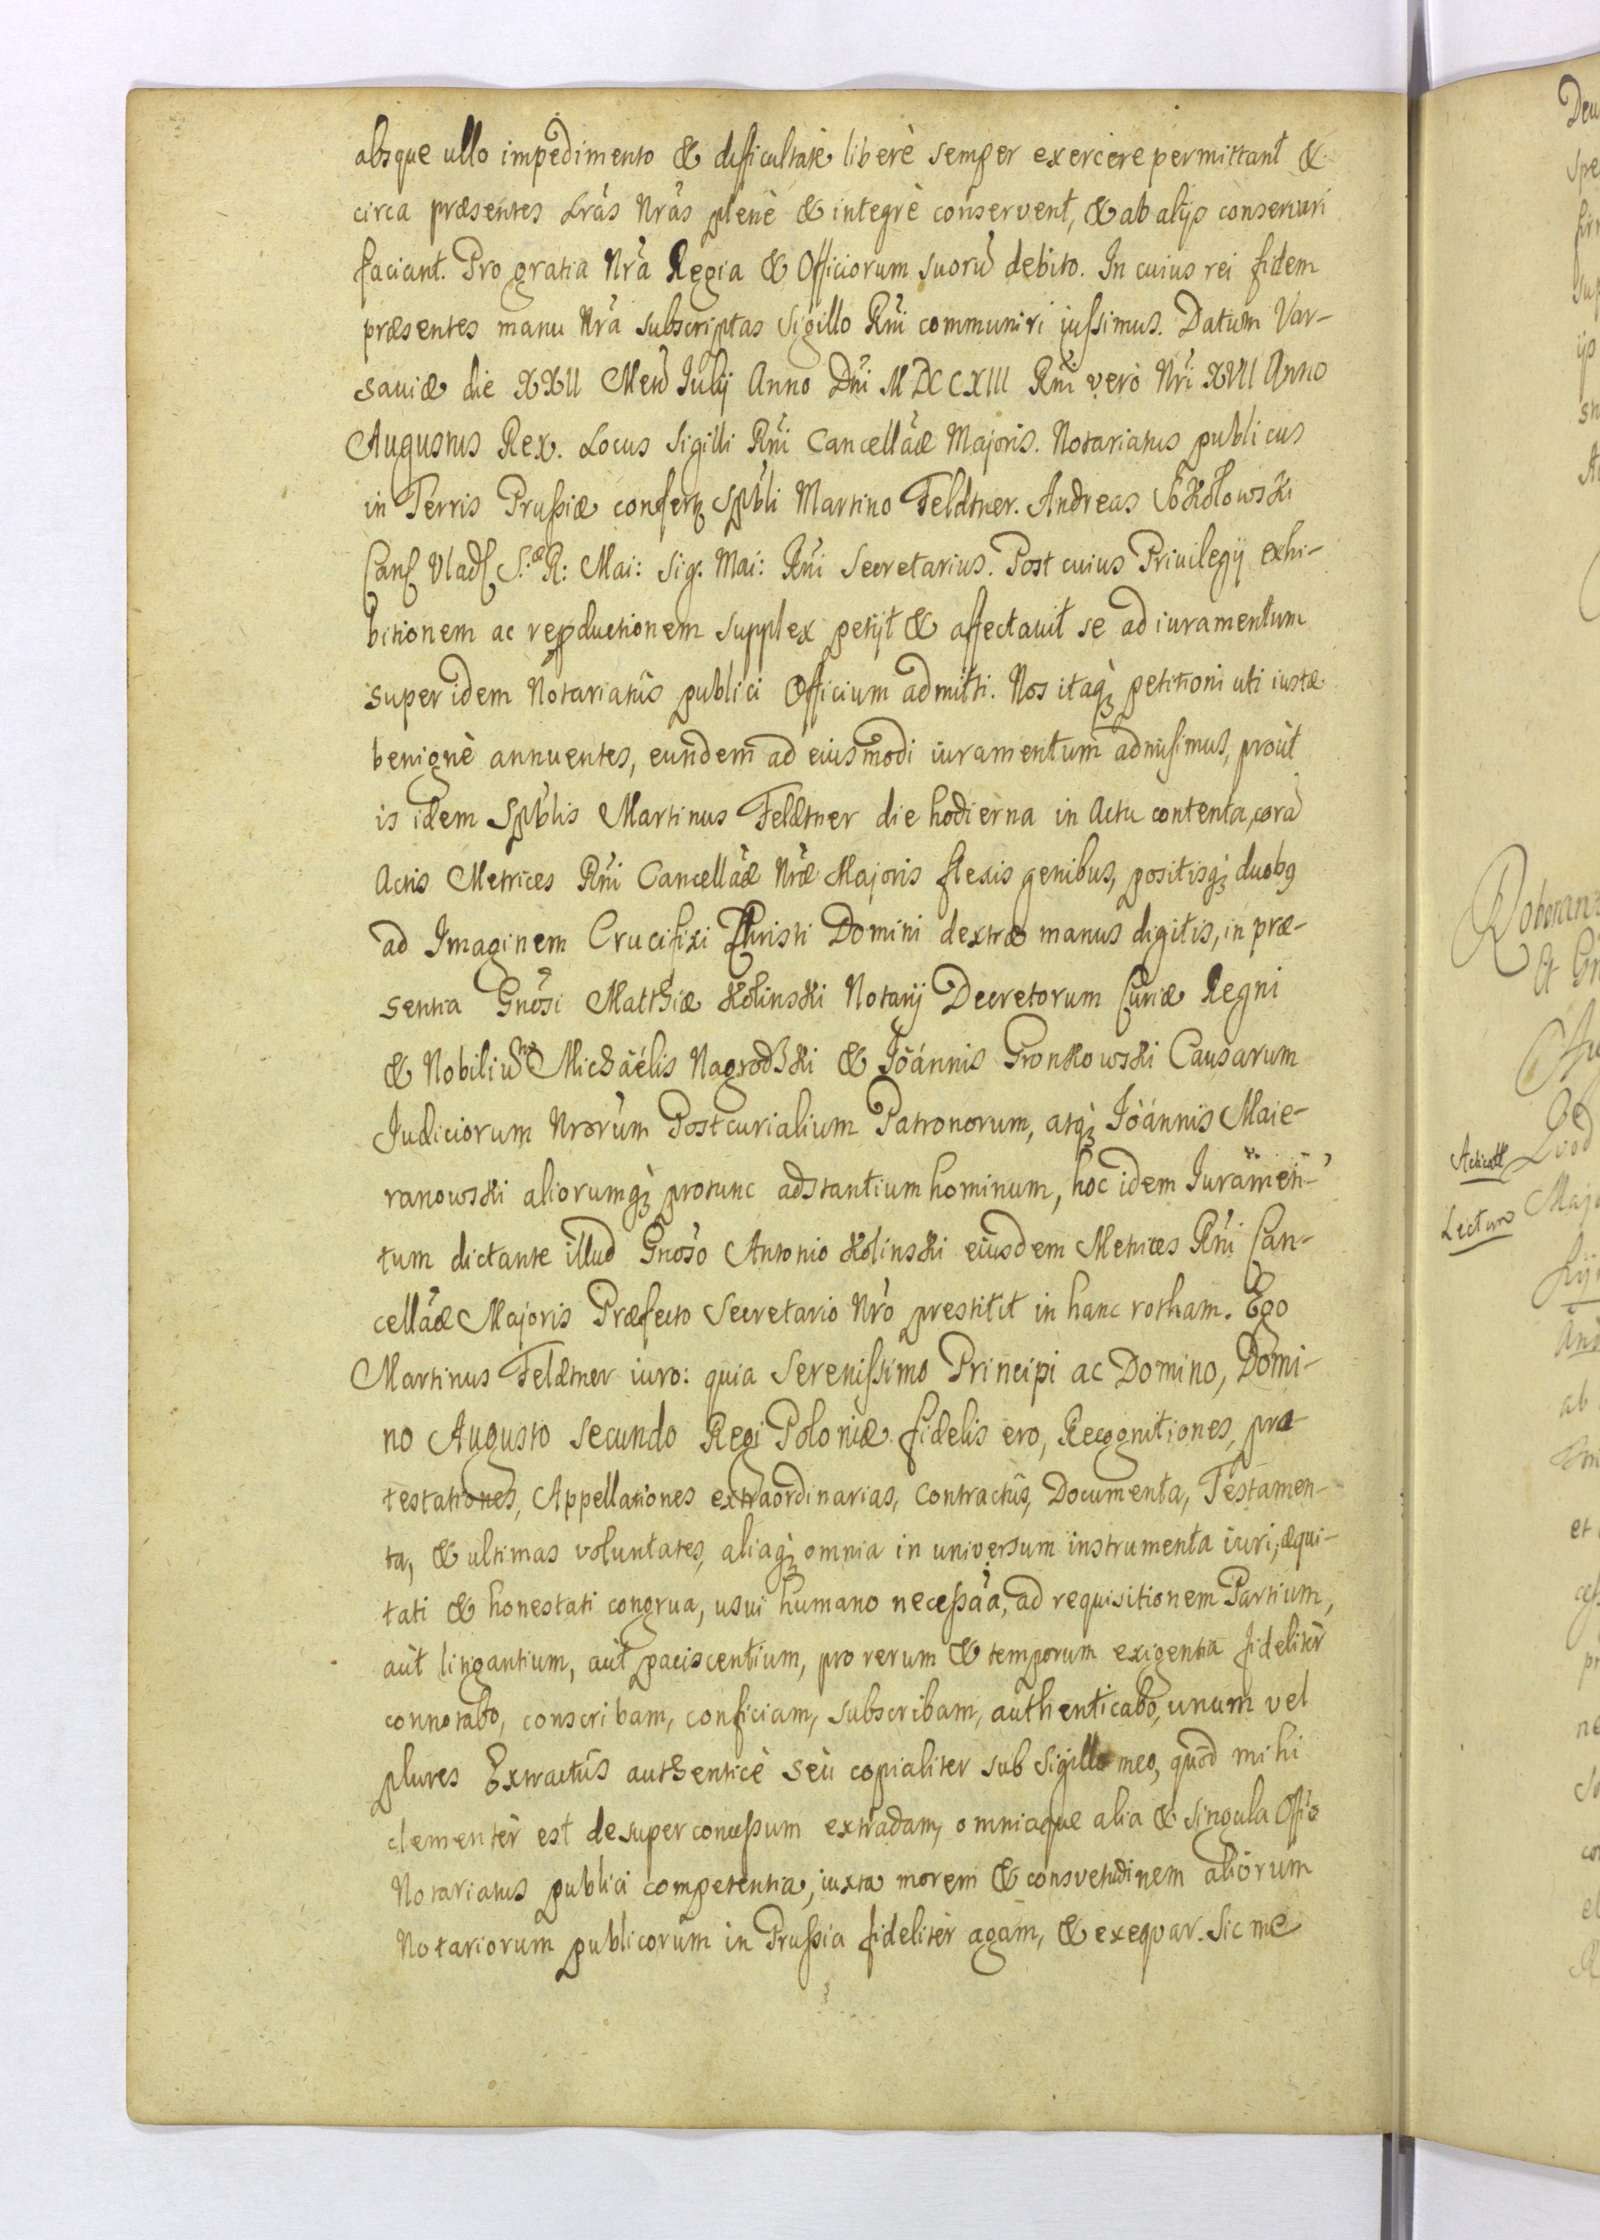 absque ullo impedimento & difficultate liberè semper exercere permittant &
circa præsentes Lrãs Nrãs plenè & integrè conservent, & ab alijs conservari
faciant. Pro gratia Nrã Regia & Officiorum suorũ debito. In cuius rei fidem
præsentes manu Nrã subscriptas Sigillo Rñi communiri iussimus. Datum Var-
saviæ die XXII Mens Julij Anno Dñi MDCCXIII Rñi verò Nrĩ XVII Anno
Augustus Rex. Locus Sigilli Rñi Cancellãæ Majoris. Notariatus publicus
in Terris Prussiæ confertz Spbli Martino Feldtner. Andreas Sokołowski
Canc Vlad S.æ R: Mai: Sig: Mai: Rñi Secretarius. Post cuius Privilegij exhi-
bitionem ac reproductionem supplex petijt & affectavit se ad iuramentum
super idem Notariatûs publici Officium admitti. Nos itaqz petitioni uti iustæ
benignè annuentes, eundem ad eiusmodi iuramentum admisimus, proùt
is idem Spblis Martinus Feldtner die hodierna in Actu contenta, corã
Actis Metrices Rñi Cancellãæ Nræ Majoris flexis genibus, positisqz duobg
ad Imaginem Crucifixi Christi Domini dextræ manus digitis, in præ-
sentia Gnosi Matthiæ Kolinski Notarij Decretorum Curiæ Regni
& Nobiliũ Michaëlis Nagrodzki & Joannis Gronkowski Causarum
Judiciorum Nrorum Postcurialium Patronorum, atqz Joannis Maie-
ranowski aliorumqz protunc adstantium hominum, hoc idem Iuramen-
tum dictante illud Gnoso Antonio Kolinski eiusdem Metrices Rñi Can-
cellãæ Majoris Præfecto Secretario Nrõ prestitit in hanc rotham. Ego
Martinus Feldtner iuro: quia Serenissimo Principi ac Domino, Domi-
no Augusto Secundo Regi Poloniæ fidelis ero, Recognitiones, pro-
testationes, Appellationes extraordinarias, Contractûs, Documenta, Testamen-
ta, & ultimas voluntates, aliaqz omnia in universum instrumenta iuri, æqui-
tati & honestati congrua, usui humano necessãa, ad requisitionem Partium,
aut litigantium, aut paciscentium, pro rerum & temporum exigentia fideliter
connotabo, conscribam, conficiam, subscribam, authenticabo, unum vel
plures Extractûs authenticè seù copialiter sub Sigillo meo, quod mihi
clementèr est desuper concessum extradam, omniaque alia & singula Offio
Notariatus publici competentia, iuxta morem & consvetudinem aliorum
Notariorum publicorum in Prussia fideliter agam, & exequar. Sic me